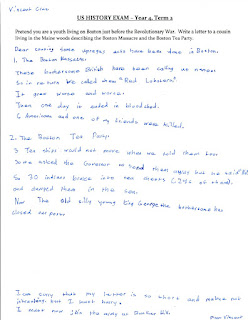 Vincent
US HISTORY EXAM – Year 4, Term 2
Pretend you are a youth living on Boston just before the Revolutionary War. Write a letter to a cousin
living in the Maine woods describing the Boston Massacre and the Boston Tea Party.
Dear cousin, some have been done in Boston.
1. The Boston Massacre
These British have been calling us names
So in return we called them "Red Lobsters".
It grew worse and worse.
Then one day it ended in bloodshed.
4 Americans and one of my friends were killed.
2. The Boston Tea Party
3 Tea ships would not move when we told them to
Some asked the Governor to send them away but he said No
So 30 indians broke into tea chests (of them)
and dumped them in the sea.
Now The Old silly young King George the has
closed our port
I am sorry that my letter is so short and makes not
but I must hurry.
I must now on the way to Bunker Hill
Vincent